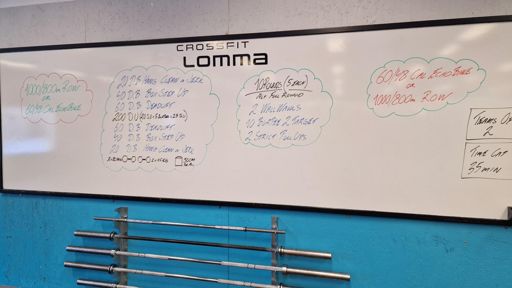 CROSSFIT
LOMMA
1000/800m ROW
OR
60/48 CAL ECHO BIKE
20 DB HANG CLEAN & JERK
40 DB BOX STEP UP
60 DB DEADLIFT
200 DU
60 DB DEADLIFT
40 DB BOX STEP UP
20 DB HANG CLEAN & JERK
10 ROUNDS (5 EACH)
ALT FULL ROUND
2 WALL WALKS
10 BURPEE 2 TARGET
2 STRICT PULL UPS
60/48 CAL ECHO BIKE
OR
1000/800m ROW
TEAMS OF
2
TIME CAP
35 MIN